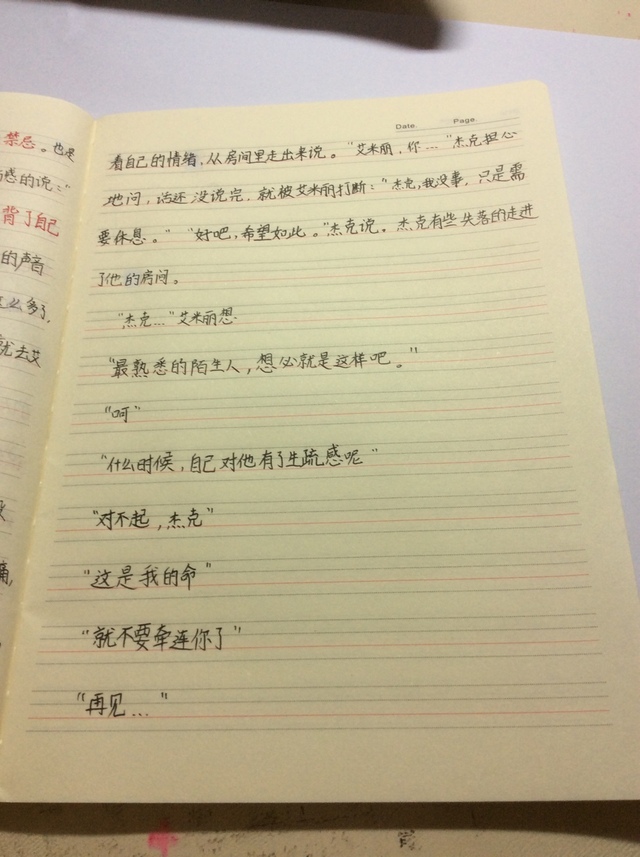 禁忌。也是
惑的说："
背了自己
的声音
么多了,
就去艾
痛,
Date. Page.
看自己的情绪,从房间里走出来说。"艾米丽,你…"杰克担心
地问,话还没说完,就被艾米丽打断:"杰克,我没事,只是需
要休息。" "好吧,希望如此。"杰克说。杰克有些失落的走进
了他的房间。
"杰克…"艾米丽想.
"最熟悉的陌生人,想必就是这样吧。"
"呵"
"什么时候,自己对他有了生疏感呢"
"对不起,杰克"
"这是我的命"
"就不要牵连你了"
"再见…"